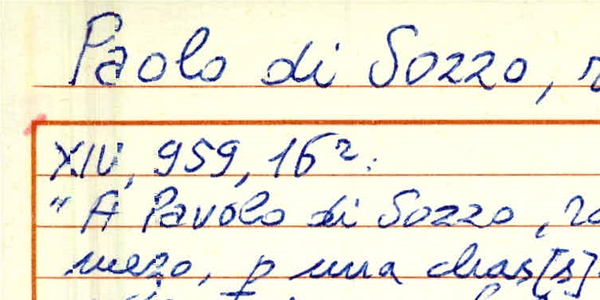 Paolo di Sozzo,
XIV, 959, 16r:
"A Pavolo di Sozzo,
mezo, p una chas[s]